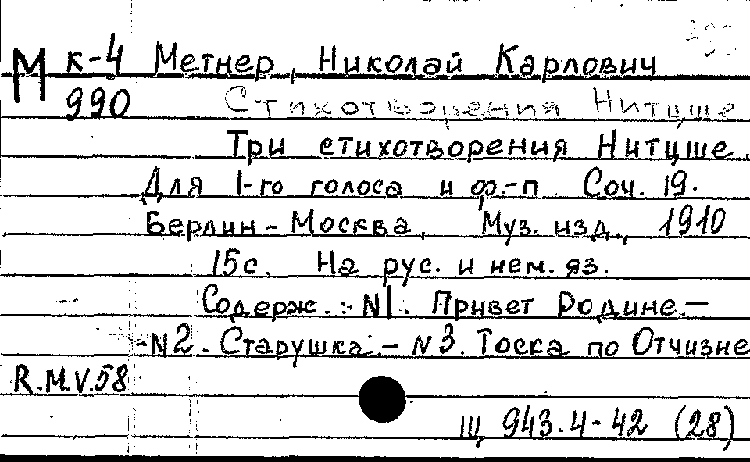 М к-4 Метнер, Николай Карлович
990 Стихотворения Нитцше
Три стихотворения Нитцше.
Для 1-го голоса и ф.-п. Соч. 19.
Берлин - Москва, Муз. изд., 1910
15с. На рус. и нем. яз.
Содерж.: N1. Привет Родине. -
- N2. Старушка. - N3. Тоска по Отчизне
R.M.V.58
Щ 943.4-42 (28)